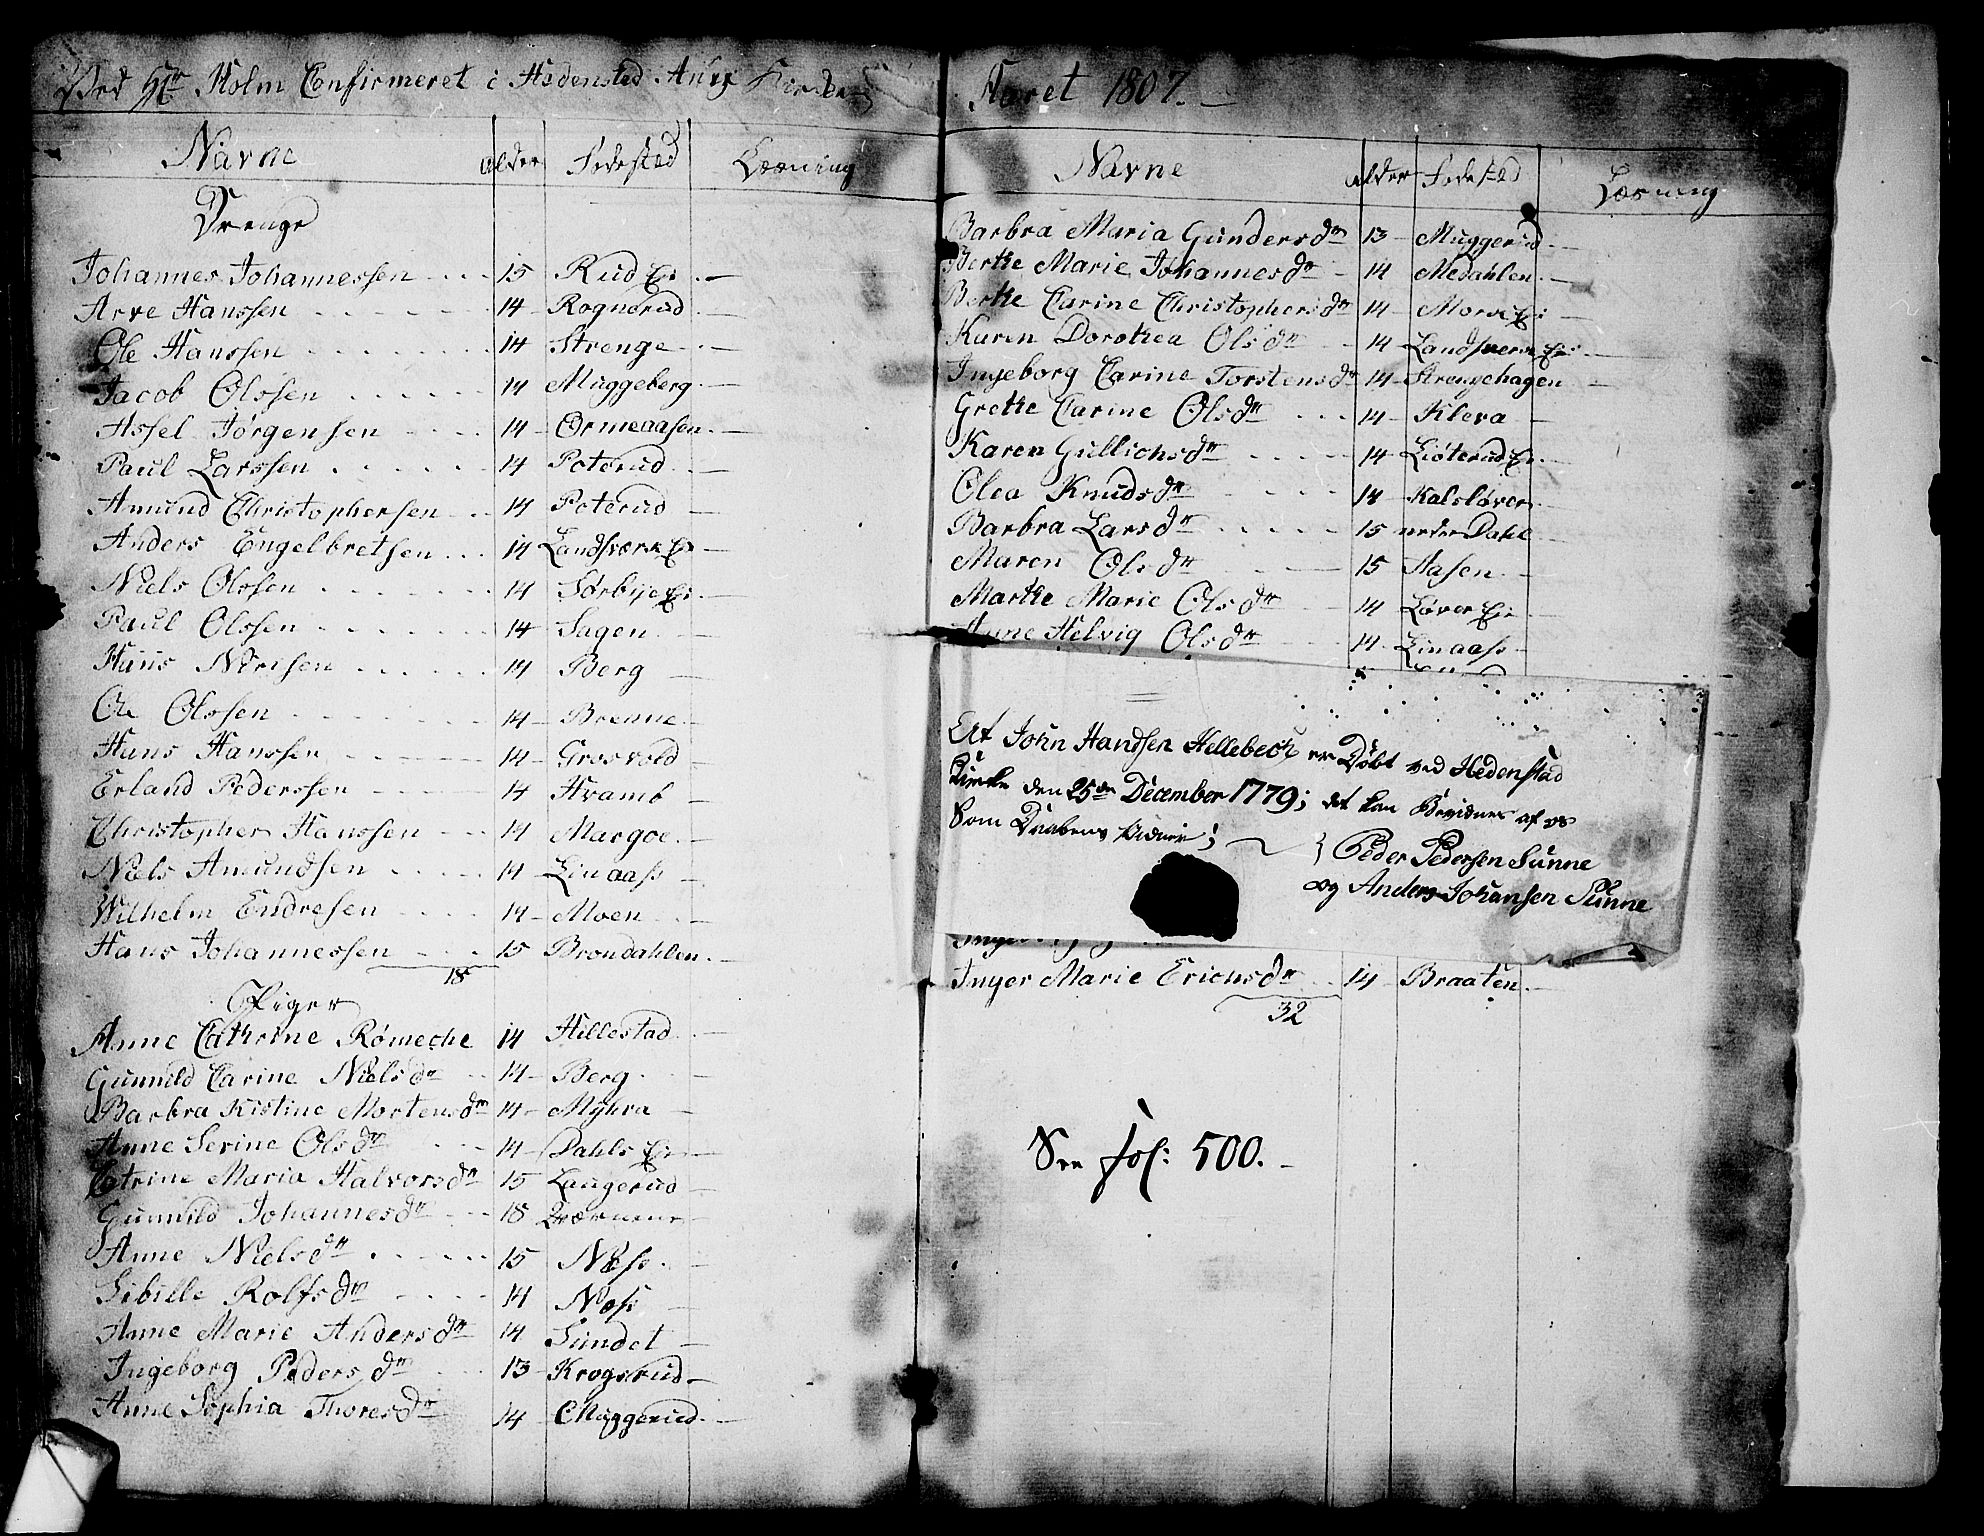 Ved Hr Holm Confirmeret i Hedensted Anex Kirke
Navne alder Fødested Læsning
Drenge
Johannes Johannessen 15 Rud Ei
Arve Hanssen 14 Rognerud
Ole Hanssen 14 Strenge
Jacob Olssen 14 Muggeberg
Assel Jørgensen 14 Ormeaasen
Paul Larssen 14 Poterud
Amund Christophersen 14 Poterud
Anders Engelbretsen 14 Landsværk Ei
Niels Olssen 14 Sørbye Ei
Paul Olssen 14 Sagen
Hans Nerisen 14 Berg
Ole Olssen 14 Brenne
Hans Hanssen 14 Grosvold
Erland Pederssen 14 Hvamb
Christopher Hanssen 14 Margoe
Niels Amundsen 14 Linaass
Wilhelm Endresen 14 Moen
Hans Johannessen 15 Brondahlen
18
Piger
Anne Cathrine Rømeche 14 Hillestad
Gunnild Carine Nielsdr 14 Berg
Barbra Kistine Mortensdr 14 Myhra
Anne Serine Olsdr 14 Dahls Ei
Petrine Maria Halvorsdr 15 Laugerud
Gunnild Johannesdr 18 Qværnene
Anne Nielsdr 15 Næss
Sibille Rolfsdr 14 Næss
Anne Marie Andersdr 14 Sundet
Ingeborg Pedersdr 13 Krogsrud
Anne Sophia Thoresdr 14 Muggerud
Aaret 1807.
Navne alder Fødested Læsning
Barbra Maria Gundersdr 13 Muggerud
Berthe Marie Johannesdr 14 Medahlen
Berthe Carine Christophersdr 14 Morve Ei
Karen Dorothea Olsdr 14 Landsverk Ei
Ingeborg Carine Torstensdr 14 Strengehagen
Grethe Carine Olsdr 14 Kleva
Karen Gullichsdr 14 Liøterud Ei
Olea Knudsdr 14 Kalsløver
Barbra Larsdr 15 neder Dahl
Maren Olsdr 15 Aasen
Marthe Marie Olsdr 14 Løver Ei
Anne Helvig Olsdr 14 Linaass
At John Handsen Hellebech er Døbt ved Hedenstad
Kirke den 25de December 1779; det kan Bevidnes af os
Som Daabens Vidner;
Peder Pedersen Sunne
og Anders Johansen Sunne
Inger Marie Erichsdr 14 Braaten
32
See fol: 500.